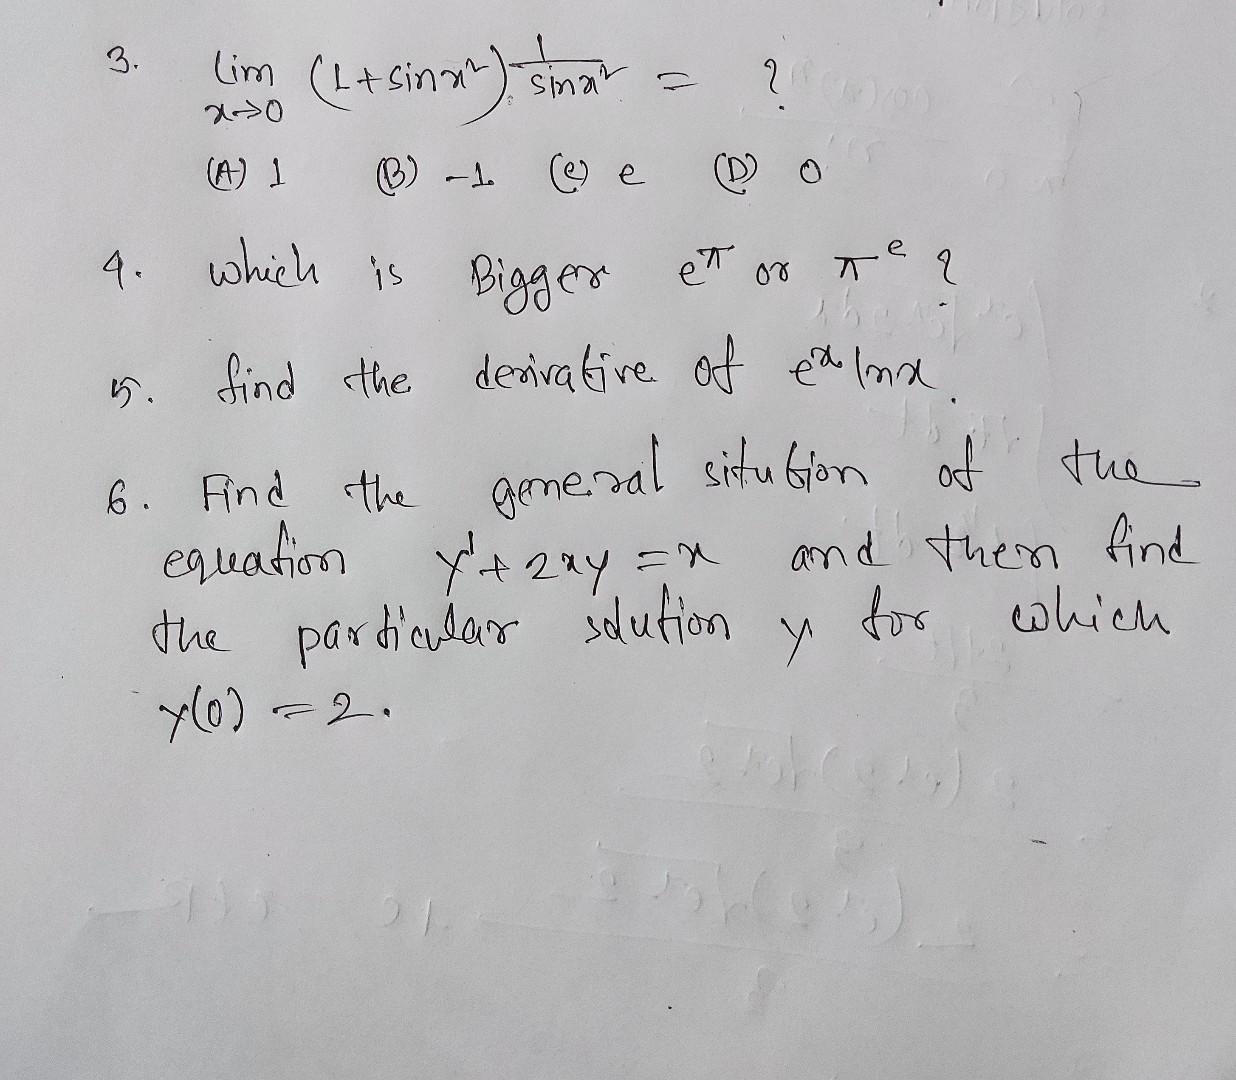 3. lim (1+sinx²)^1/sinx² = ?
x→0
(A) 1 (B) -1 (c) e (D) 0
4. which is Bigger e^π or π^e ?
5. find the derivative of e^x lnx.
6. Find the general sitution of the
equation y'+2xy=x and then find
the particular solution y for which
y(0) = 2.